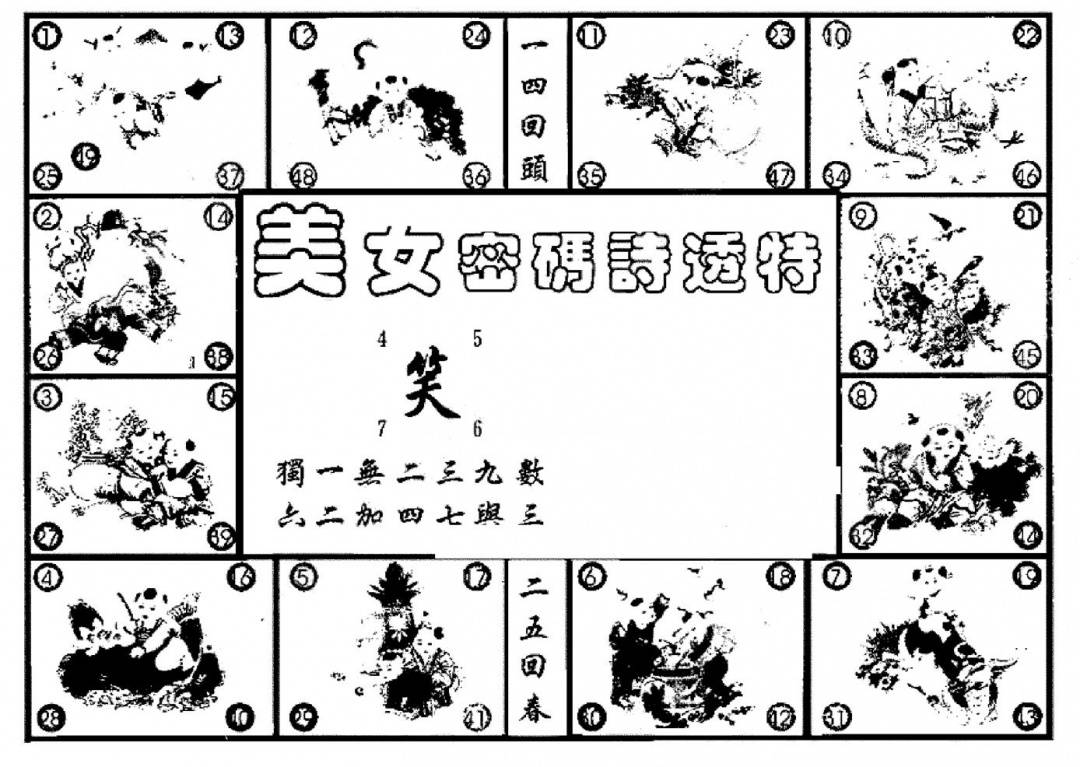 ① ⑬ ⑫ ㉔
一四回頭
⑪ ㉓ ⑩ ㉒
㊾
㉕ ㊲ ㊽ ㊱ ㉟ ㊼ ㉞ ㊻
② ⑭
美女密碼詩透特
⑨ ㉑
㉖ ㊳
4 5
笑
7 6
㉝ ㊺
③ ⑮
⑧ ⑳
獨一無二三九數
六二加四七與三
㉗ ㊴
㉜ ㊹
④ ⑯ ⑤ ⑰
二五回春
⑥ ⑱ ⑦ ⑲
㉘ ㊵ ㉙ ㊶ ㉚ ㊷ ㉛ ㊸